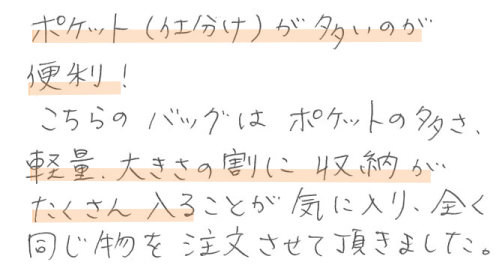 ポケット(仕分け)が多いのが
便利！
こちらの バッグは ポケットの多さ、
軽量、大きさの割に 収納が
たくさん入ることが 気に入り、全く
同じ物を 注文させて頂きました。